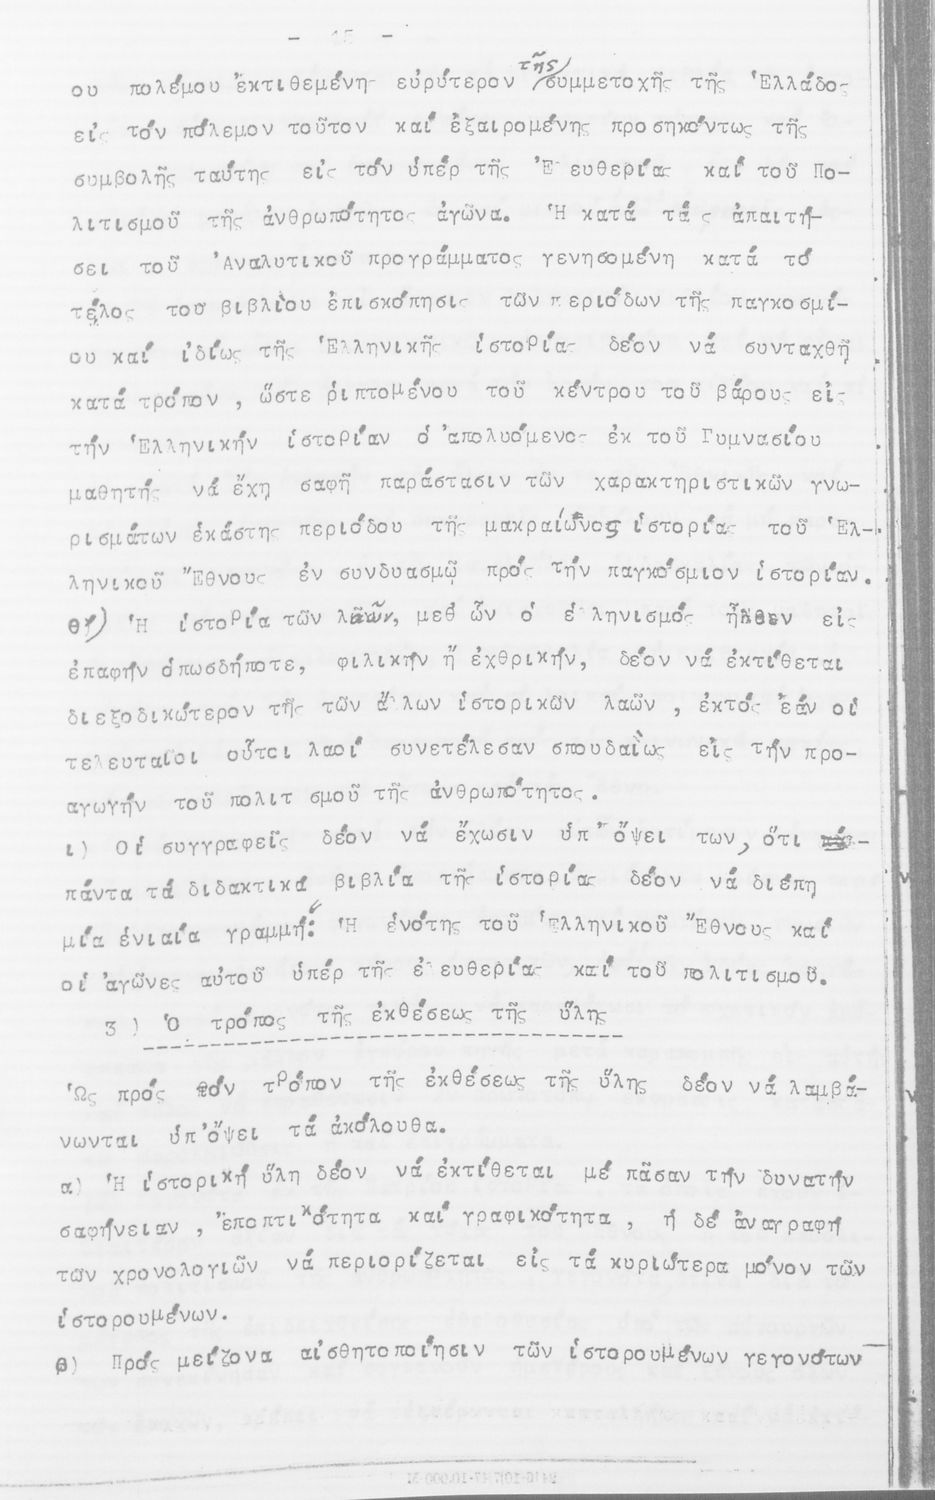 - 15 -
ου πολέμου ἐκτιθεμένη εὐρύτερον τῆς συμμετοχῆς τῆς Ἑλλάδος
εἰς τόν πόλεμον τοῦτον καί ἐξαιρομένης προσηκόντως τῆς
συμβολῆς ταύτης εἰς τόν ὑπέρ τῆς Ἐ ευθερίας καί τοῦ Πο-
λιτισμοῦ τῆς ἀνθρωπότητος ἀγῶνα. Ἡ κατά τάς ἀπαιτή-
σει τοῦ Ἀναλυτικοῦ προγράμματος γενησομένη κατά τό
τέλος του βιβλίου ἐπισκόπησις τῶν περιόδων τῆς παγκοσμί-
ου καί ἰδίως τῆς Ἑλληνικῆς ἱστορίας δέον νά συνταχθῇ
κατά τρόπον , ὥστε ῥιπτομένου τοῦ κέντρου τοῦ βάρους εἰς
τήν Ἑλληνικήν ἱστορίαν ὁ ἀπολυόμενος ἐκ τοῦ Γυμνασίου
μαθητής νά ἔχῃ σαφῆ παράστασιν τῶν χαρακτηριστικῶν γνω-
ρισμάτων ἑκάστης περιόδου τῆς μακραίωνος ἱστορίας τοῦ Ἑλ-
ληνικοῦ Ἔθνους ἐν συνδυασμῷ πρός τήν παγκόσμιον ἱστορίαν.
θ) Ἡ ἱστορία τῶν λαῶν, μεθ ὧν ὁ ἑ ληνισμός ἦλθεν εἰς
ἐπαφήν ὁπωσδήποτε, φιλικήν ἤ ἐχθρικήν, δέον νά ἐκτίθεται
διεξοδικώτερον τῆς τῶν ἄλλων ἱστορικῶν λαῶν , ἐκτός ἐάν οἱ
τελευταῖοι οὗτοι λαοί συνετέλεσαν σπουδαίως εἰς τήν προ-
αγωγήν τοῦ πολιτ σμοῦ τῆς ἀνθρωπότητος.
ι) Οἱ συγγραφεῖς δέον νά ἔχωσιν ὑπ' ὄψει των, ὅτι
πάντα τά διδακτικά βιβλία τῆς ἱστορίας δέον νά διέπῃ
μία ἑνιαία γραμμή: Ἡ ἑνότης τοῦ Ἑλληνικοῦ Ἔθνους καί
οἱ ἀγῶνες αὐτοῦ ὑπέρ τῆς ἐλευθερίας καί τοῦ πολιτισμοῦ.
3 ) Ὁ τρόπος τῆς ἐκθέσεως τῆς ὕλης
Ὡς πρός τόν τρόπον τῆς ἐκθέσεως τῆς ὕλης δέον νά λαμβά-
νωνται ὑπ'ὄψει τά ἀκόλουθα.
α) Ἡ ἱστορική ὕλη δέον νά ἐκτίθεται μέ πᾶσαν τήν δυνατήν
σαφήνειαν , ἐποπτικότητα καί γραφικότητα , ἡ δέ ἀναγραφή
τῶν χρονολογιῶν νά περιορίζεται εἰς τά κυριώτερα μόνον τῶν
ἱστορουμένων.
β) Πρός μείζονα αἰσθητοποίησιν τῶν ἱστορουμένων γεγονότων